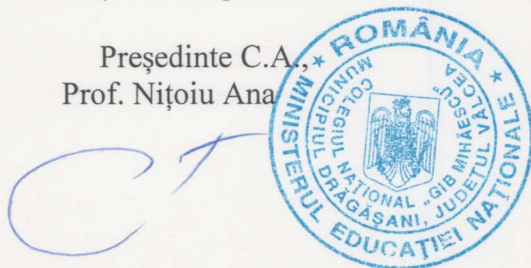 Președinte C.A.,
Prof. Nițoiu Ana
* ROMÂNIA *
MINISTERUL EDUCAȚIEI NAȚIONALE
COLEGIUL NAȚIONAL „GIB MIHĂESCU”
MUNICIPIUL DRĂGĂȘANI, JUDEȚUL VÂLCEA